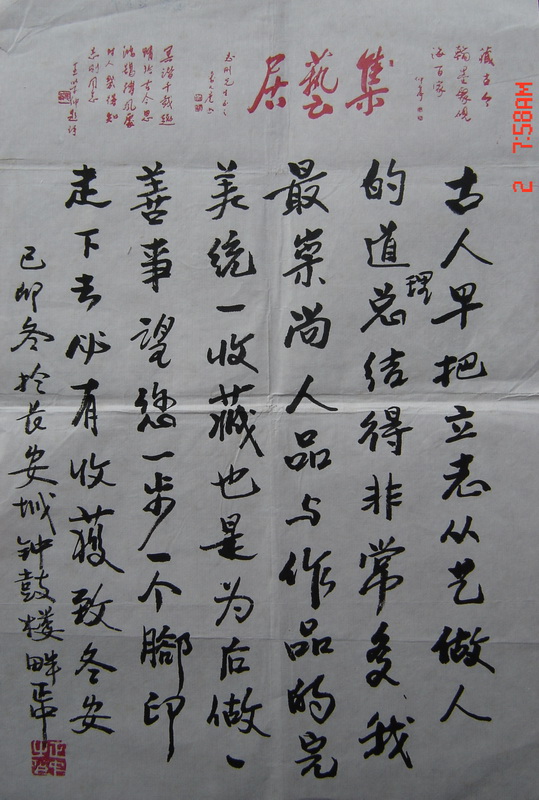 集藝居
藏古今
古人早把立志从艺做人
的道理总结得非常多、我
最崇尚人品与作品的完
美统一收藏也是为后做一
善事望您一步一个腳印
走下去必有收獲致冬安
己卯冬於長安城钟鼓楼畔正中
2 7:58AM